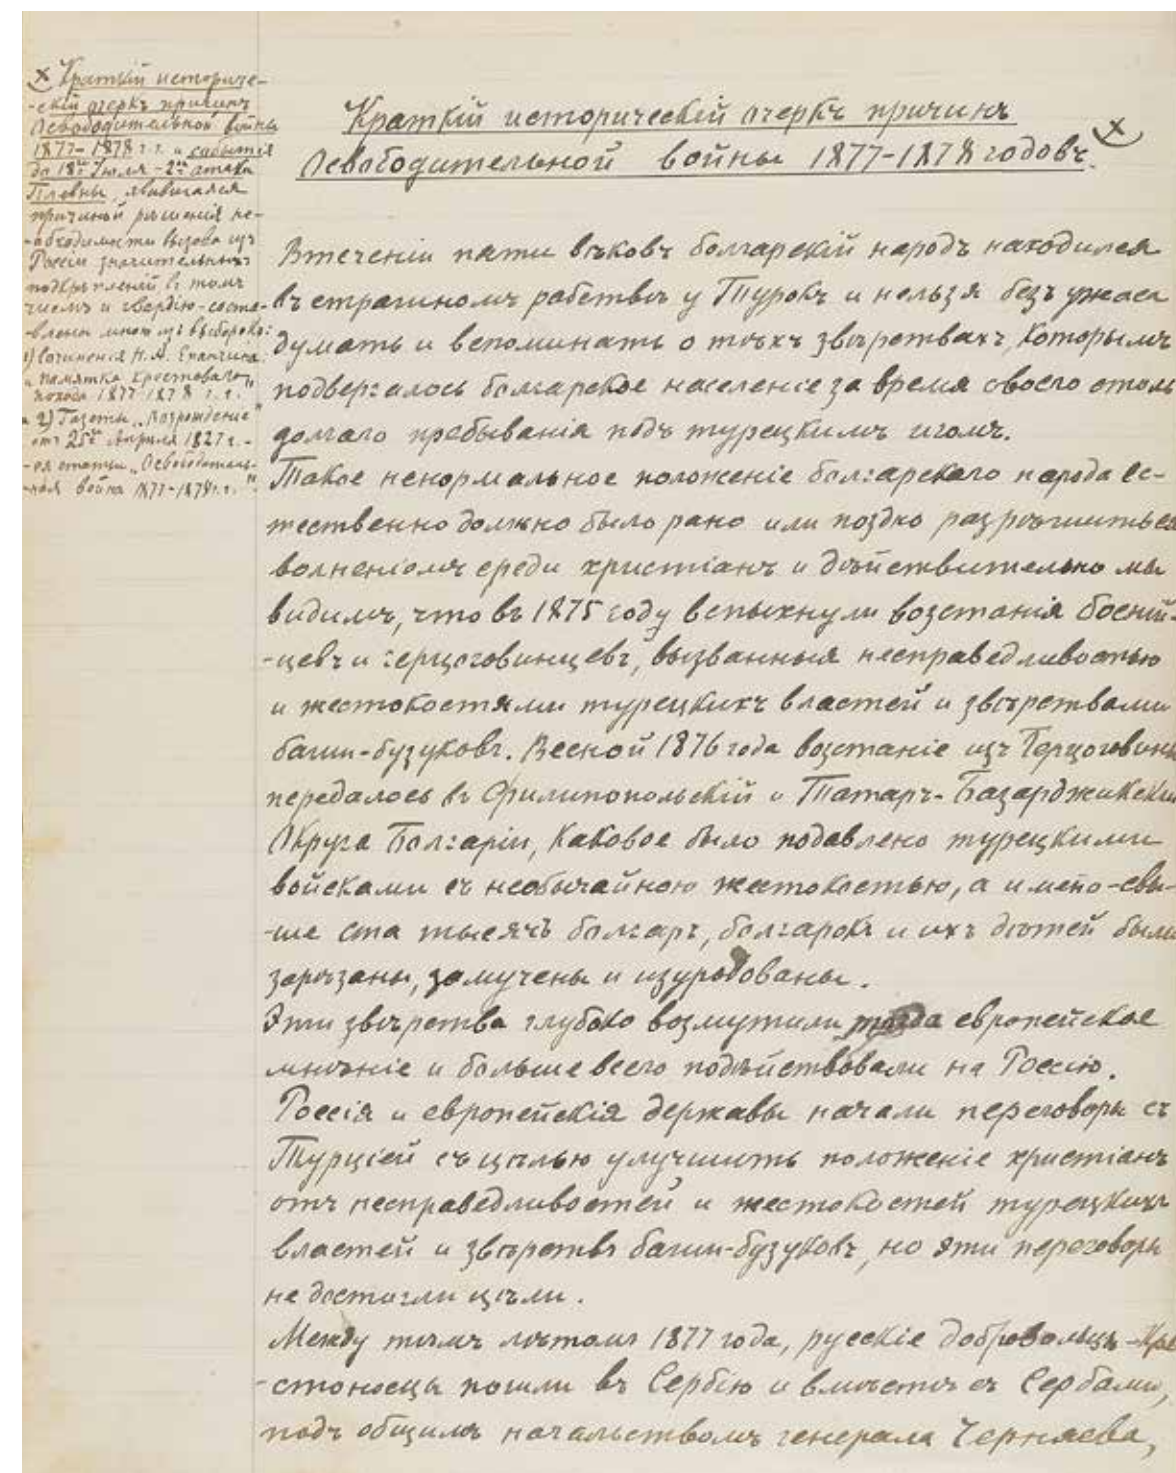 х Краткій историче-
-скій очеркъ причинъ
Освободительной войны
1877-1878 г.г. и событія
до 18го Іюля - 2ой атаки
Плевны, явившаяся
причиной рѣшенія не-
-обходимости вызова изъ
Россіи значительныхъ
подкрѣпленій въ томъ
числѣ и гвардію - соста-
-влены мною изъ выборокъ:
1) Сочиненія Н. А. Епанчина
„Памятка крестоваго
похода 1877-1878 г.г."
и 2) Газеты „Возрожденіе"
отъ 25го Апрѣля 1927 г. -
-ея статьи „Освободитель-
-ная война 1877-1878 г.г."
Краткій историческій очеркъ причинъ
Освободительной войны 1877-1878 годовъ. х
Втеченіи пяти вѣковъ болгарскій народъ находился
въ страшномъ рабствѣ у Турокъ и нельзя безъ ужаса
думать и вспоминать о тѣхъ звѣрствахъ, которымъ
подвергалось болгарское населеніе за время своего столь
долгаго пребыванія подъ турецкимъ игомъ.
Такое ненормальное положеніе болгарскаго народа ес-
тественно должно было рано или поздно разрѣшиться
волненіемъ среди христіанъ и дѣйствительно мы
видимъ, что въ 1875 году вспыхнули возстанія босній-
-цевъ и герцоговинцевъ, вызванныя несправедливостью
и жестокостями турецкихъ властей и звѣрствами
баши-бузуковъ. Весной 1876 года возстаніе изъ Герцоговины
передалось въ Филипопольскій и Татаръ-Базарджикскій
Округа Болгаріи, каковое было подавлено турецкими
войсками съ необычайною жестокостью, а имено - свы-
-ше ста тысячъ болгаръ, болгарокъ и ихъ дѣтей были
зарѣзаны, замучены и изуродованы.
Эти звѣрства глубоко возмутили тогда европейское
мнѣніе и больше всего подѣйствовали на Россію.
Россія и европейскія державы начали переговоры съ
Турціей съ цѣлью улучшить положеніе христіанъ
отъ несправедливостей и жестокостей турецкихъ
властей и звѣрствъ баши-бузуковъ, но эти переговоры
не достигли цѣли.
Между тѣмъ лѣтомъ 1877 года, русскіе добровольцы - Кре
-стоносцы пошли въ Сербію и вмѣстѣ съ Сербами,
подъ общимъ начальствомъ генерала Черняева,